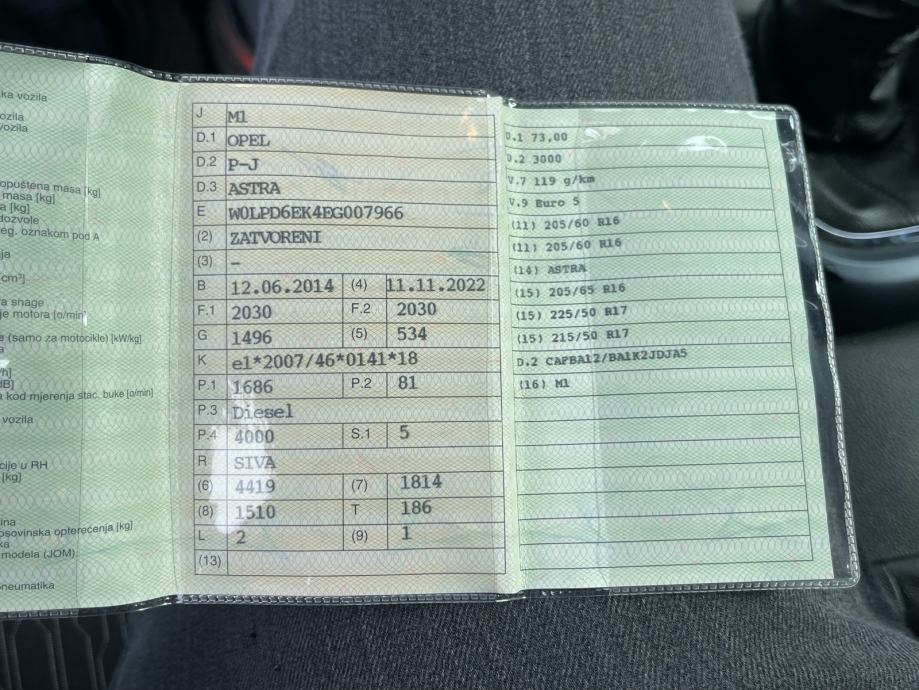 ka vozila
ozila
vozila
opuštena masa [kg]
masa [kg]
a [kg]
dozvole
eg. oznakom pod A
ja
[cm³]
a snage
je motora [o/min]
e (samo za motocikle) [kW/kg]
a
/h]
dB]
a kod mjerenja stac. buke [o/min]
vozila
cije u RH
[kg]
ina
osovinska opterećenja [kg]
ka
modela (JOM):
pneumatika
J M1
D.1 OPEL
D.2 P-J
D.3 ASTRA
E W0LPD6EK4EG007966
(2) ZATVORENI
(3) -
B 12.06.2014 (4) 11.11.2022
F.1 2030 F.2 2030
G 1496 (5) 534
K e1*2007/46*0141*18
P.1 1686 P.2 81
P.3 Diesel
P.4 4000 S.1 5
R SIVA
(6) 4419 (7) 1814
(8) 1510 T 186
L 2 (9) 1
(13)
U.1 73,00
U.2 3000
V.7 119 g/km
V.9 Euro 5
(11) 205/60 R16
(11) 205/60 R16
(14) ASTRA
(15) 205/65 R16
(15) 225/50 R17
(15) 215/50 R17
D.2 CAPBA12/BA1K2JDJA5
(16) M1